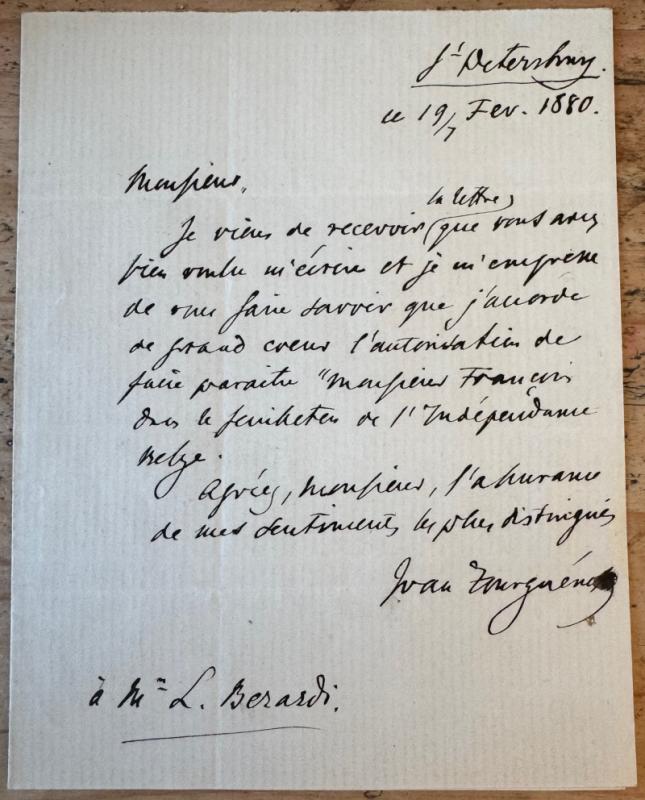 St Petersbourg.
ce 19/7 Fev. 1880.
Monsieur,
la lettre
Je viens de recevoir que vous avez
bien voulu m'écrire et je m'empresse
de vous faire savoir que j'accorde
de grand coeur l'autorisation de
faire paraitre "Monsieur François
dans le feuilleton de l'Indépendance
Belge.
Agréez, Monsieur, l'assurance
de mes sentiments les plus distingués
Ivan Tourguéneff
à Mr L. Berardi.